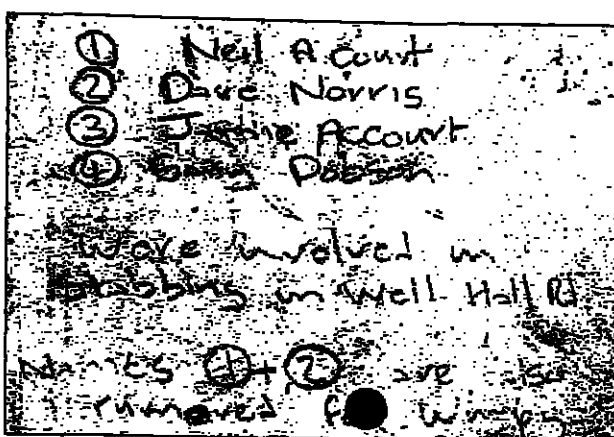 ① Neil A Court
② Dave Norris
③ Jamie Accourt
④ Gary Dobson
Were involved in
Stabbing in Well Hall Rd
Names ① + ② are also
rumoured Wimpy